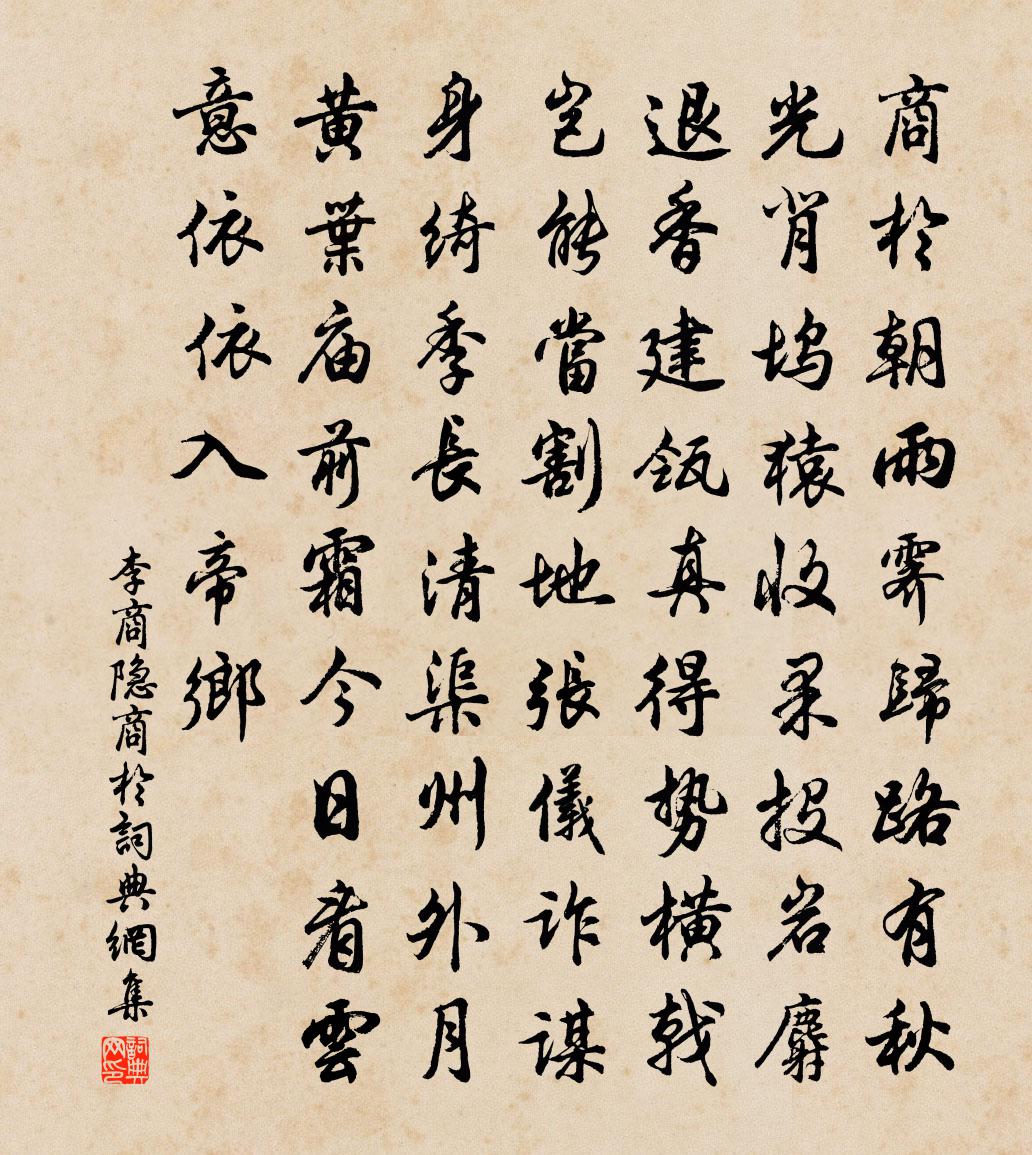 商於朝雨霁歸路有秋
光背坞猿收果投岩麝
退香建瓴真得势橫戟
岂能當割地張儀詐謀
身綺季長清渠州外月
黃葉庙前霜今日看雲
意依依入帝鄉
李商隐商於詞典網集
詞典网印